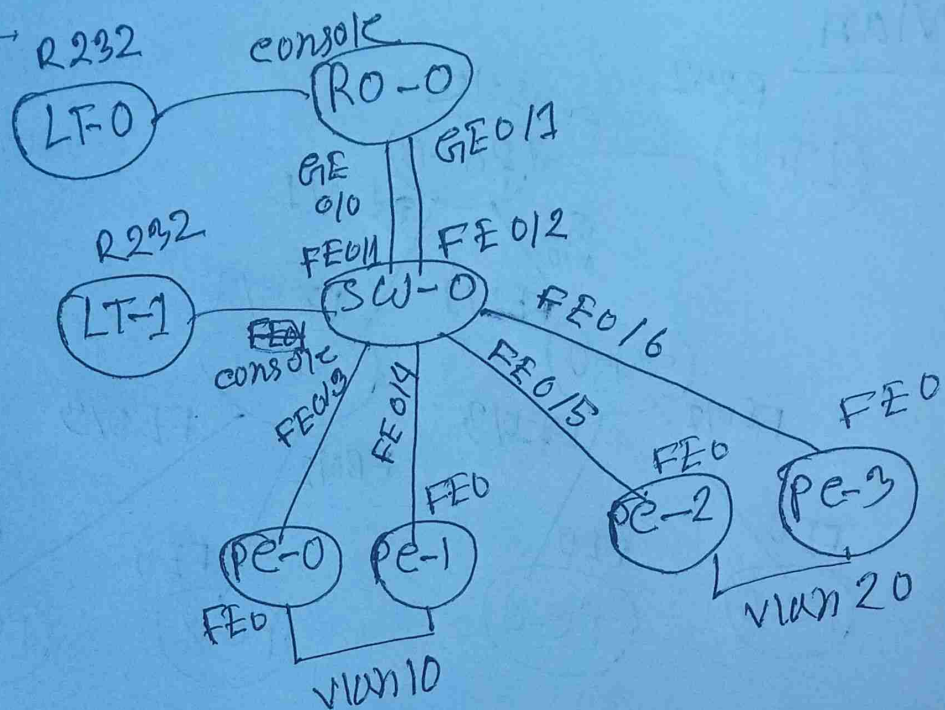 R232
console
LT-0
RO-0
GE
0/0
GE0/1
R232
FE0/1
FE0/2
LT-1
SW-0
console
FE0/3
FE0/4
FE0/5
FE0/6
FE0
FE0
FE0
PC-0
PC-1
PC-2
PC-3
FE0
vlan10
vlan20